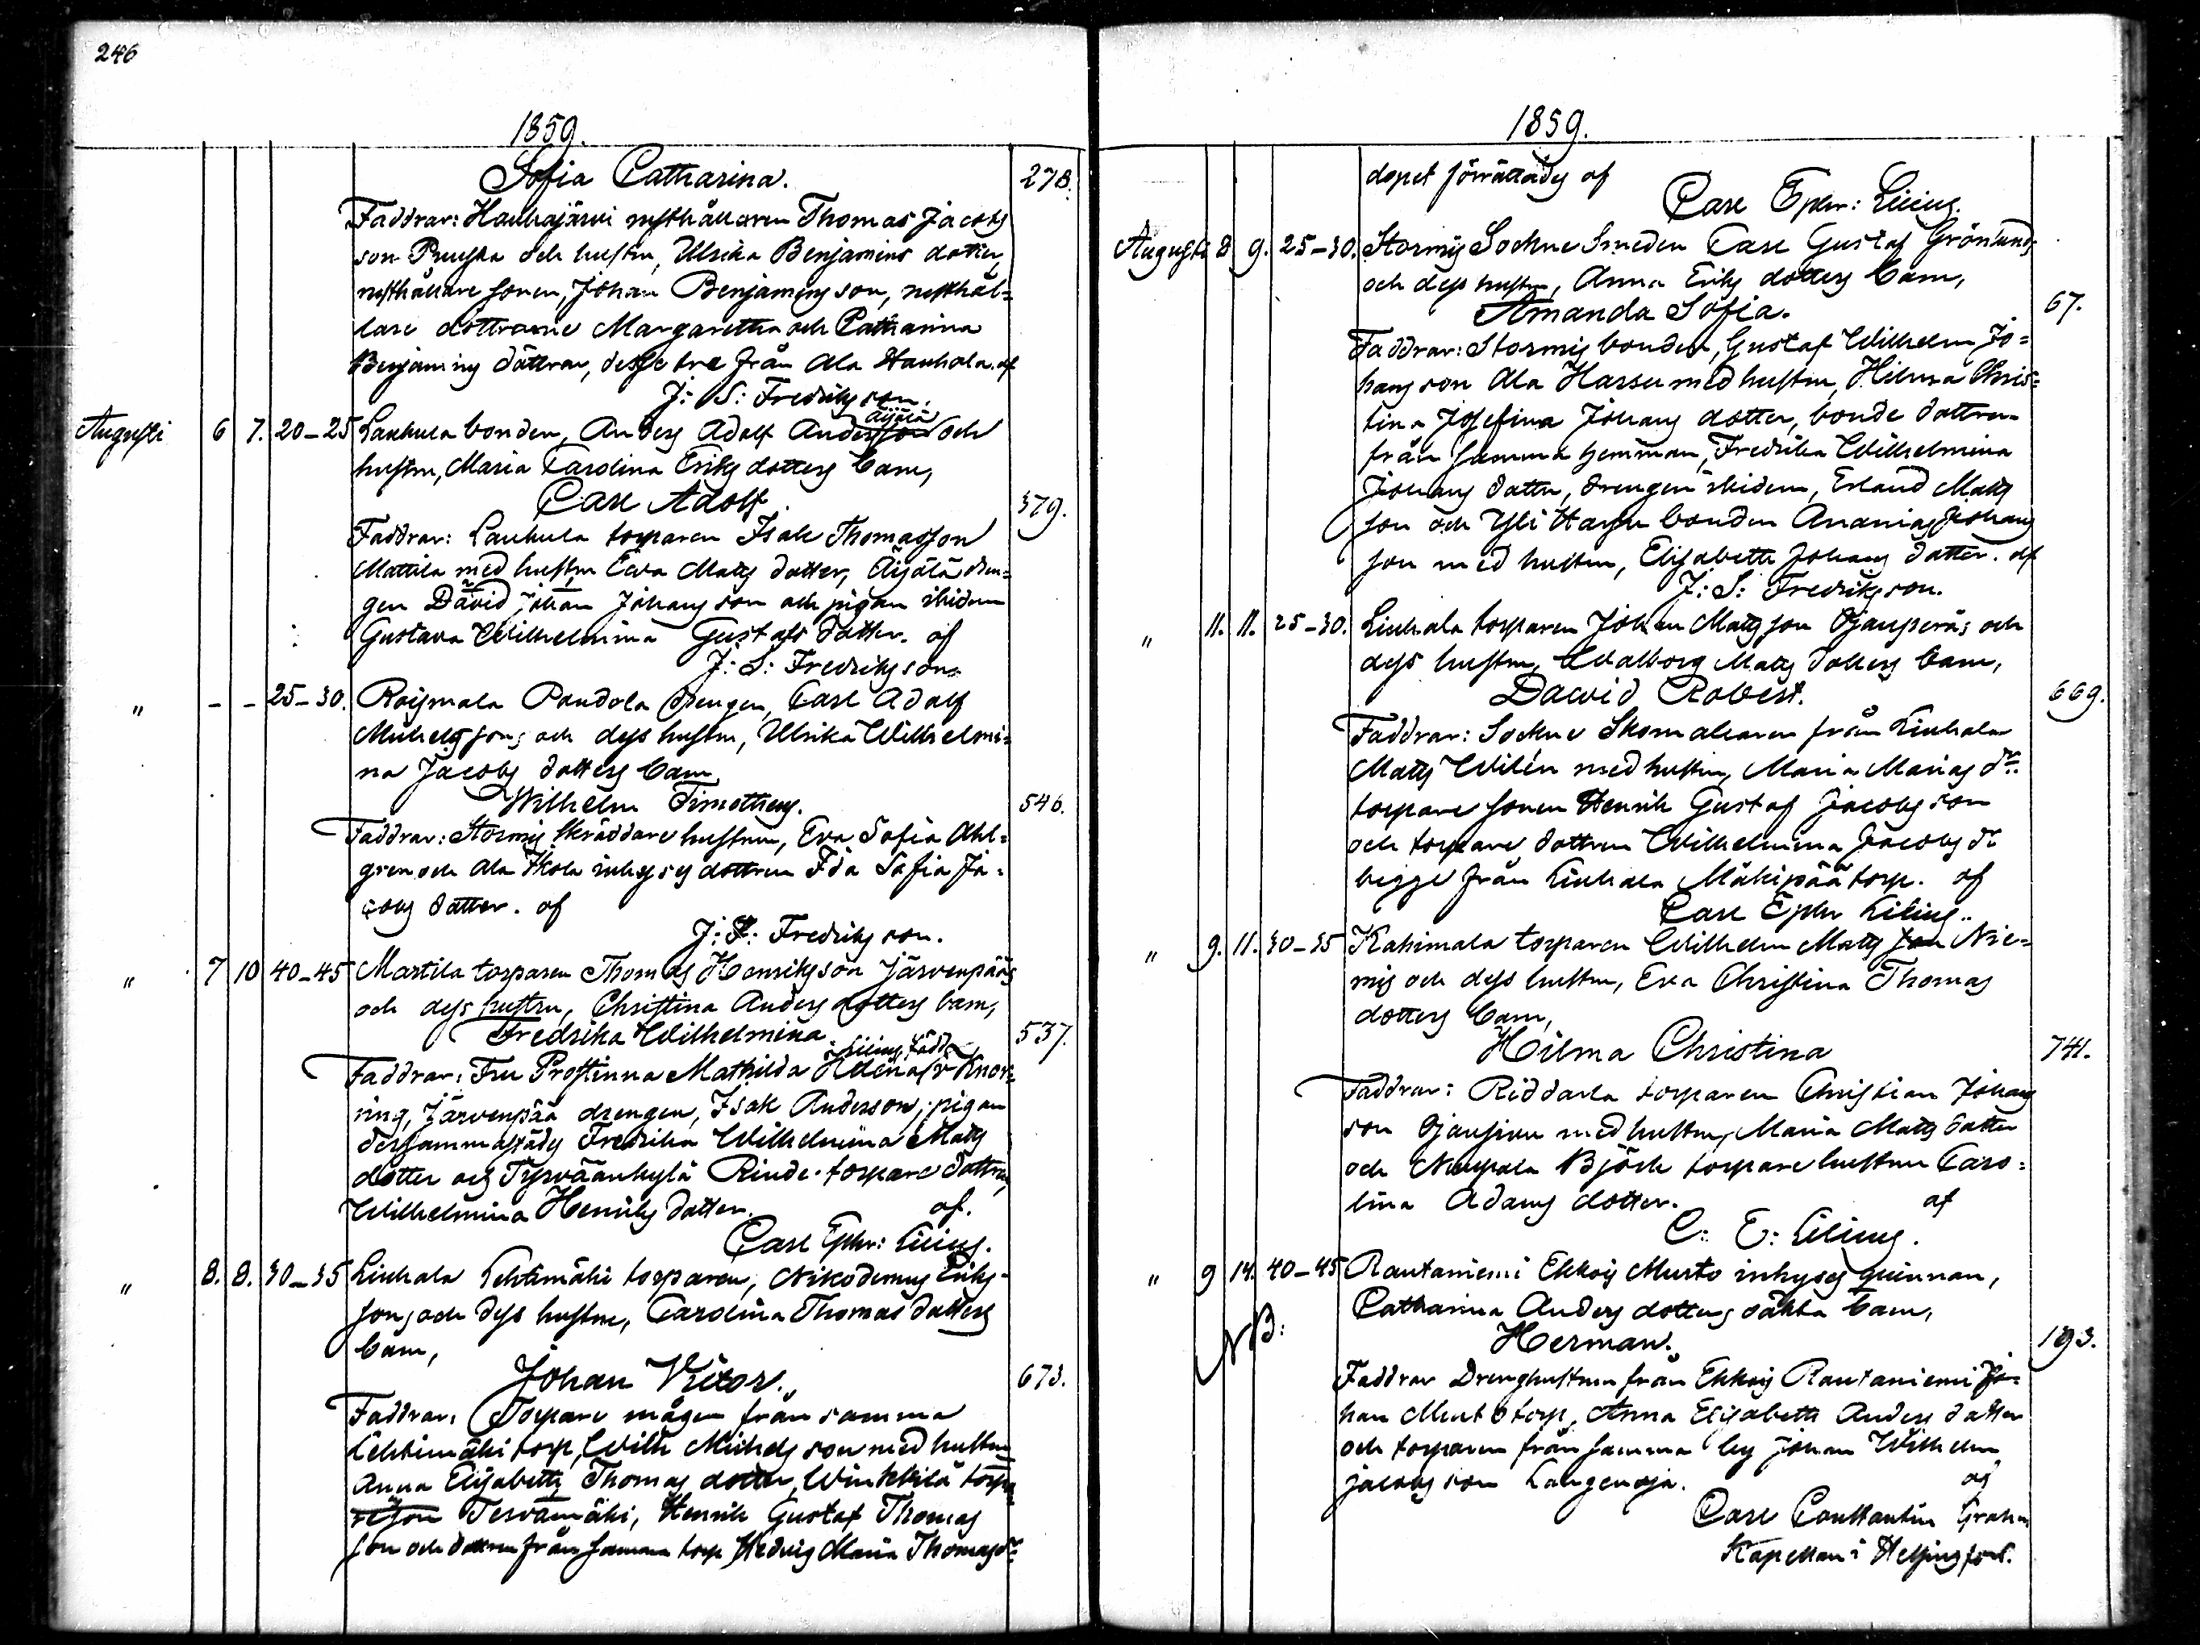 246
1859.
Sofia Catharina. 278.
Faddrar: Hauhajärvi rusthållaren Thomas Jacobs
son Pruska och hustru, Ulrika Benjamins dotter,
rusthållare sonen, Johan Benjamins son, rusthål=
lare döttrarne Margaretha och Catharina
Benjamins döttrar, desse tre från Ala Hauhola. af
J: S: Fredriksson.
Augusti 6 7. 20-25 Laukula bonden, Anders Adolf Andersson Äijälä och
hustru, Maria Carolina Eriks dotters barn,
Carl Adolf. 379.
Faddrar: Laukula torparen Isak Thomasson
Mattila med hustru Eva Matts dotter, Äijälä dren=
gen David Johan Johans son och pigan ibidem
Gustava Wilhelmina Gustafs dotter. af
J: S: Fredriksson.
" - - 25-30. Roismala Pandola drengen, Carl Adolf
Michelssons och dess hustru, Ulrika Wilhelmi=
na Jacobs dotters barn
Wilhelm Timotheus. 546.
Faddrar: Stormis skräddare hustrun, Eva Sofia Ahl=
gren och Ala Skola inhyses dottren Ida Sofia Ja=
cobs dotter. af
J: S: Fredriksson.
" 7 10 40-45 Martila torparen Thomas Henriksson Järvenpääs
och dess hustru, Christina Anders dotters barn,
Fredrika Wilhelmina. 537.
Lilius född
Faddrar: Fru Prostinna Mathilda Helena v. Knor=
ring, Järvenpää drengen, Isak Andersson, pigan
dersammastädes Fredrika Wilhelmina Matts
dotter och Tyrväänkylä Rinde torpare dottren,
Wilhelmina Henriks dotter. af.
Carl Ephr: Lilius.
" 8. 8. 30-35 Liuhala Lehtimäki torparen, Nikodemus Eriks-
sons och dess hustru, Carolina Thomas dotters
barn,
Johan Victor. 673.
Faddrar: Torpare mågen från samma
Lehtimäki torp, Wilh Michels son med hustru
Anna Elisabeth Thomas dotter, torpa=
Tervamäki, Henrik Gustaf Thomas
son och dottren från samma torp Hedvig Maria Thomasdr.
1859.
dopet förrättades af
Carl Ephr: Lilius.
Augusti 8 9. 25-30. Stormis Sockne Smeden Carl Gustaf Grönlunds
och dess hustru, Anna Eriks dotters barn,
Amanda Sofia. 67.
Faddrar: Stormis bonden, Gustaf Wilhelm Jo=
hans son Ala Hassu med hustru, Hilma Chris=
tina Josefina Johans dotter, bonde dottren
från samma hemman, Fredrika Wilhelmina
Johans dotter, drengen ibidem, Erland Matts
son och Yli Hassu bonden Ananias Johans
son med hustru, Elisabeth Johans dotter. af
J: S: Fredriksson.
" 11. 11. 25-30. Liuhala torparen Johan Mattsson Ojanperäs och
dess hustru, Walborg Matts dotters barn,
Dawid Robert. 669.
Faddrar: Sockne Skomakaren från Liuhala
Matts Wilén med hustru, Maria Marias dr.
torpare sonen Henrik Gustaf Jacobs son
och torpare dottren Wilhelmina Jacobs dr
bägge från Liuhala Mäkipää torp. af
Carl Ephr Lilius..
" 9. 11. 30-35 Kahimala torparen Wilhelm Matts son Nie=
mis och dess hustru, Eva Christina Thomas
dotters barn,
Hilma Christina 741.
Faddrar: Riddarla torparen Christian Johans
son Ojansuu med hustru, Maria Matts dotter
och Nuupala Björk torpare hustrun Caro=
lina Adams dotter. af
C: E: Lilius.
" 9 14. 40-45 Rautaniemi Ekkois Musto inhyses quinnan,
Catharina Anders dotters oäkta barn,
NB: Herman. 193.
Faddrar Drenghustrun från Ekkois Rautaniemi Jo=
han torp, Anna Elisabeth Anders dotter
och torparen från samma by Johan Wilhelm
Jacobs son Langenoja. af
Carl Constantin Grahn
Kapellan i Helsingfors.